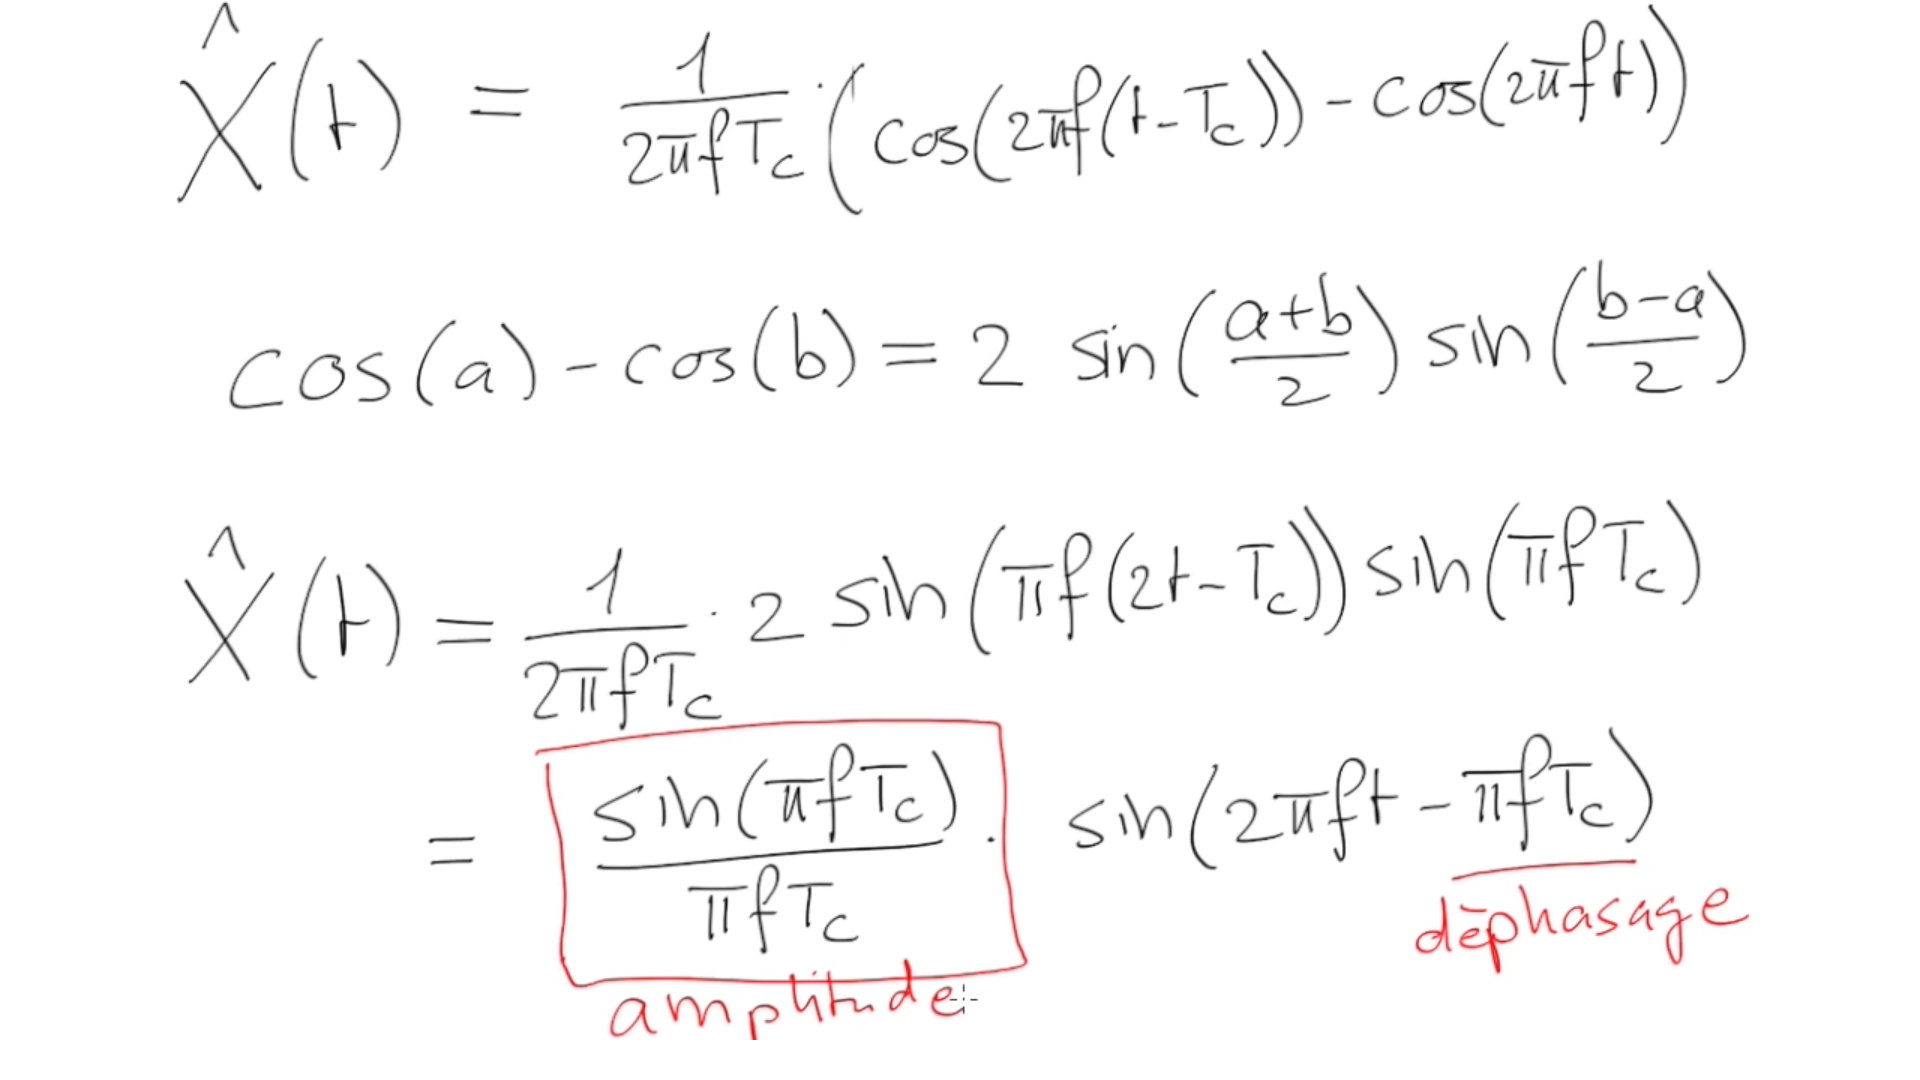 X̂(t) = 1/(2πfTc) · (cos(2πf(t-Tc)) - cos(2πft))
cos(a) - cos(b) = 2 sin((a+b)/2) sin((b-a)/2)
X̂(t) = 1/(2πfTc) · 2 sin(πf(2t-Tc)) sin(πfTc)
= sin(πfTc)/(πfTc) · sin(2πft - πfTc)
déphasage
amplitude